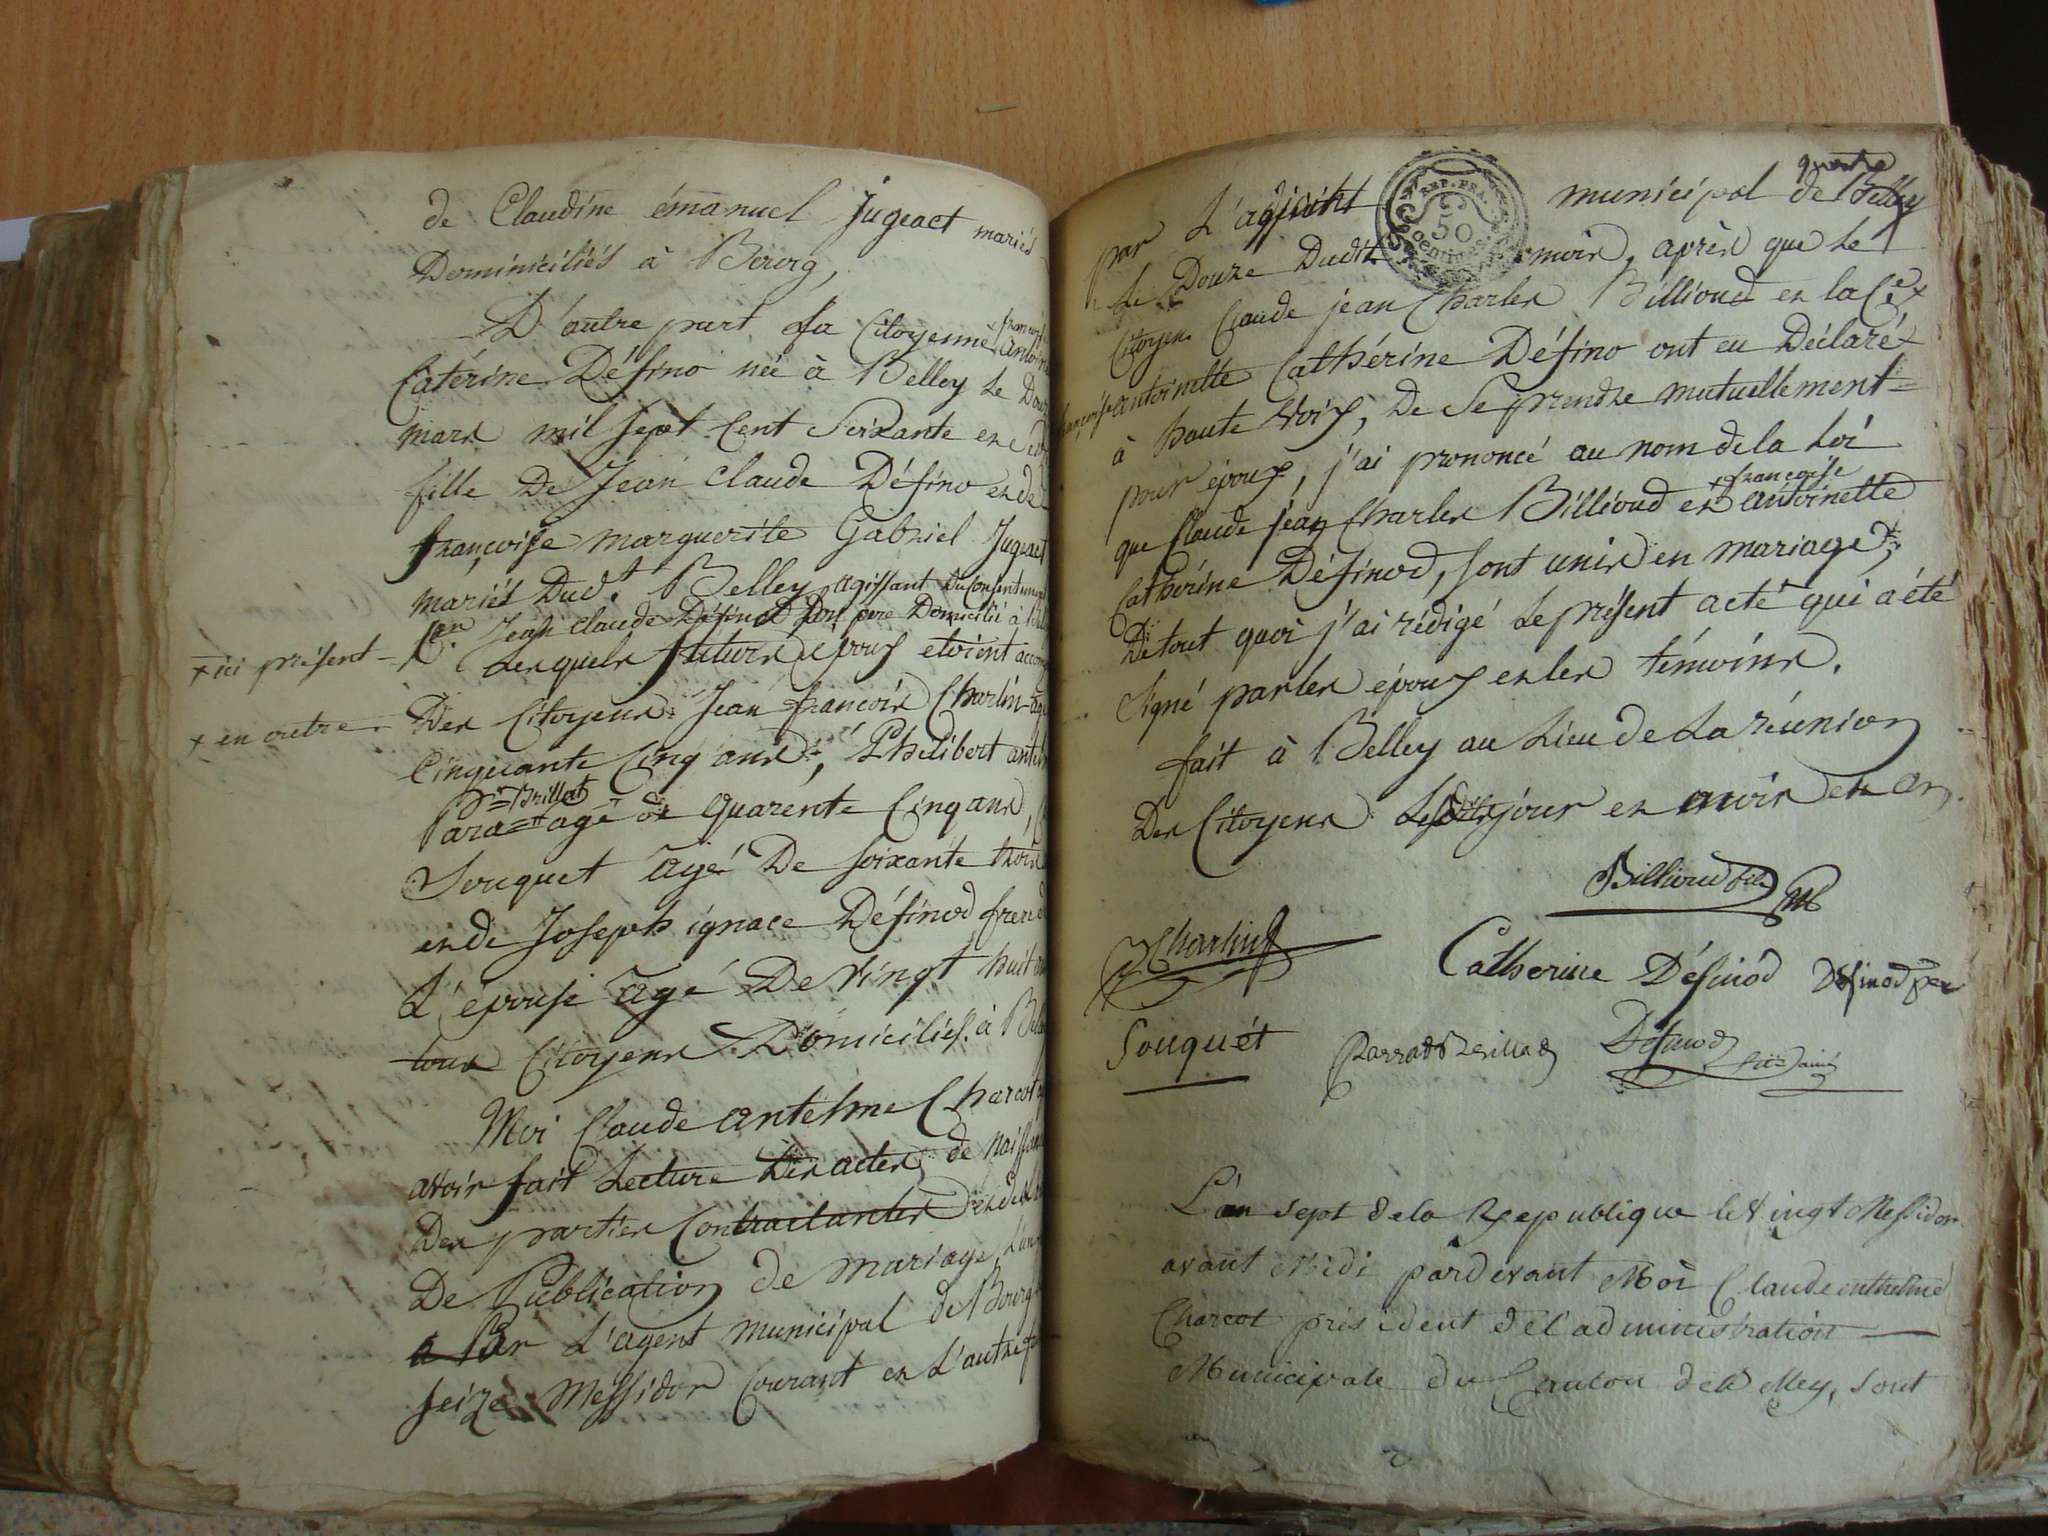 de Claudine émanuel Jugeact mariés
Dominiciliés à Bourg,
D'autre part La Citoyenne
Catérine Défino née à Belley Le
mars mil Sept Cent Soixante
fille De Jean Claude Défino et de
françoise marguerite Gabriel Jugeact
mariés Dud.t Belley agissant du Consentement
+ ici présent C.en Jean Claude Définod Son père Domicilié à
Lesquels futurs époux étoient
+ en outre Des Citoyens Jean françois Charlin
Cinquante Cinq ans, Philibert
Brillat
âgé de quarente Cinq ans,
Souquet âgé De soixante trois
et de Joseph ignace Définod frere
L'épouse âgé De Vingt huit
tous Citoyens Domiciliés à
Moi Claude antelme Charcot
avoir fait Lecture Des actes de
Des parties Contractantes
De Publication de mariage
a Par L'agent municipal de Bourg
seize Messidor Courant et L'autre
quatre
par L'adjoint municipal de Belley
REP. FRA.
50
Centimes
Le Douze Dudit après que Le
Citoyen Claude jean Charles Billioud et la C.e
françoise antoinette Cathérine Défino ont eu Déclaré
à haute Voix, De Se prendre mutuellement
pour époux, j'ai prononcé au nom de la Loi
françoise
que Claude jean Charles Billioud et antoinette
Cathérine Définod, sont unis en mariage,
De tout quoi j'ai rédigé Le présent acte qui a été
Signé par les époux et les témoins.
fait à Belley au Lieu de La réunion
Des Citoyens Lesdits jour et mois et an.
Billioud fils
Charlin
Catherine Définod Définod père
Souquét Définod fils ainé
L'an sept de la République le vingt Messidor
avant Midi pardevant Moi Claude anthelme
Charcot président de l'administration
Municipale du Canton de Belley, sont